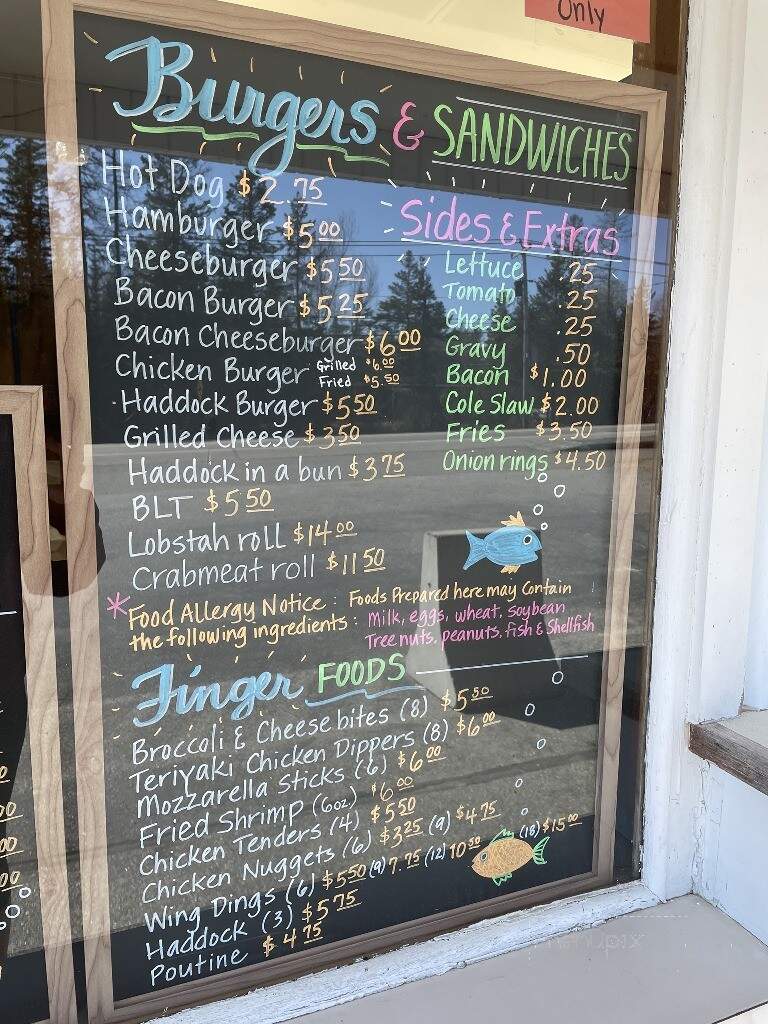 Only
Burgers & SANDWICHES
Hot Dog $2.75
Hamburger $5.00
Cheeseburger $5.50
Bacon Burger $5.25
Bacon Cheeseburger $6.00
Chicken Burger Grilled $6.00
Fried $5.50
Haddock Burger $5.50
Grilled Cheese $3.50
Haddock in a bun $3.75
BLT $5.50
Lobstah roll $14.00
Crabmeat roll $11.50
Sides & Extras
Lettuce .25
Tomato .25
Cheese .25
Gravy .50
Bacon $1.00
Cole Slaw $2.00
Fries $3.50
Onion rings $4.50
*Food Allergy Notice: Foods Prepared here may Contain
the following ingredients: Milk, eggs, wheat, soybean
Tree nuts, peanuts, fish & Shellfish
Finger FOODS
Broccoli & Cheese bites (8) $5.50
Teriyaki Chicken Dippers (8) $6.00
Mozzarella Sticks (6) $6.00
Fried Shrimp (6oz) $6.00
Chicken Tenders (4) $5.50
Chicken Nuggets (6) $3.25 (9) $4.75
Wing Dings (6) $5.50 (9) 7.75 (12) 10.50 (18) $15.00
Haddock (3) $5.75
Poutine $4.75
menupix